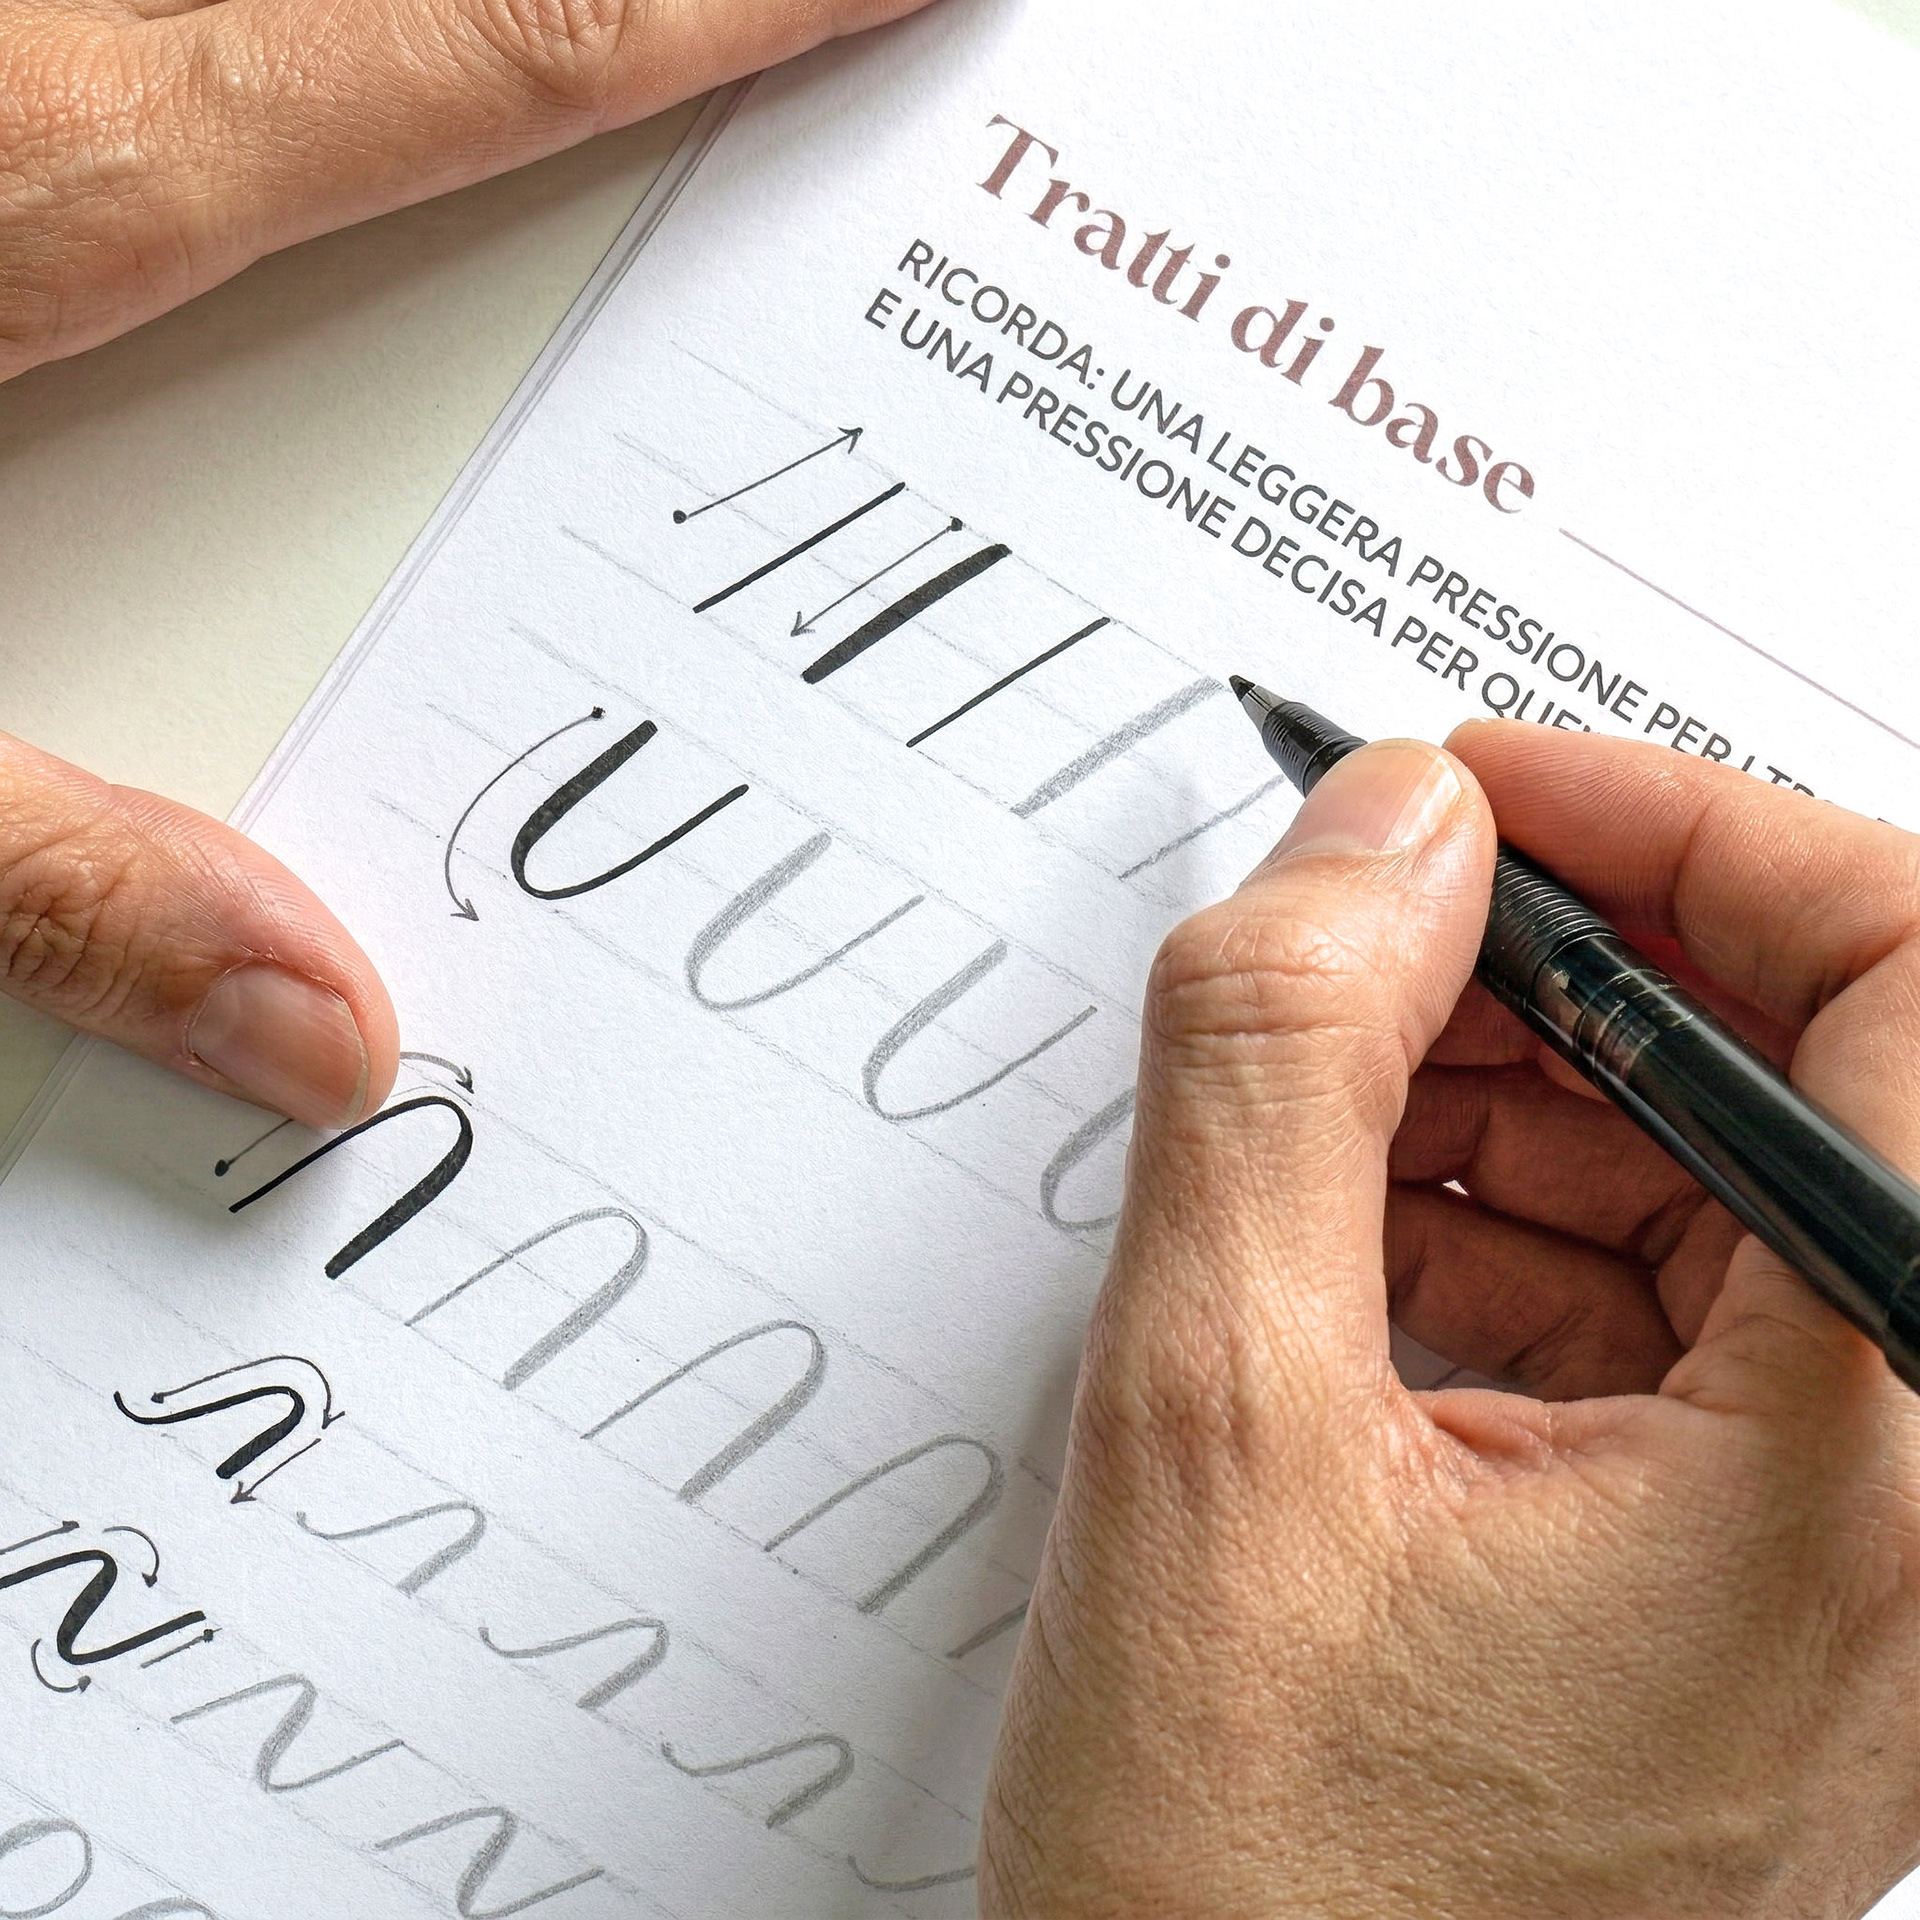 Tratti di base
RICORDA: UNA LEGGERA PRESSIONE PER I
E UNA PRESSIONE DECISA PER